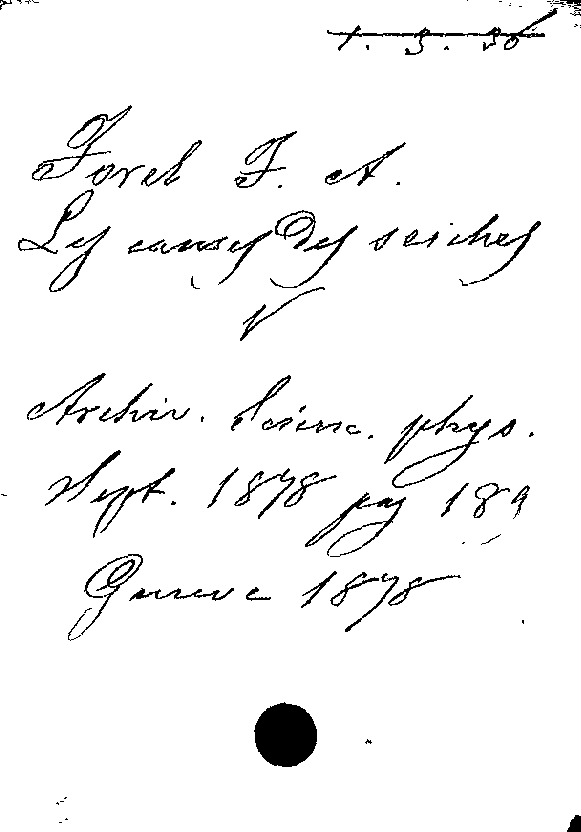 1. 3. 36
Forel F. A.
Les causes des seiches
V
Archiv. Scienc. phys.
Sept. 1878 pag 189
Geneve 1878